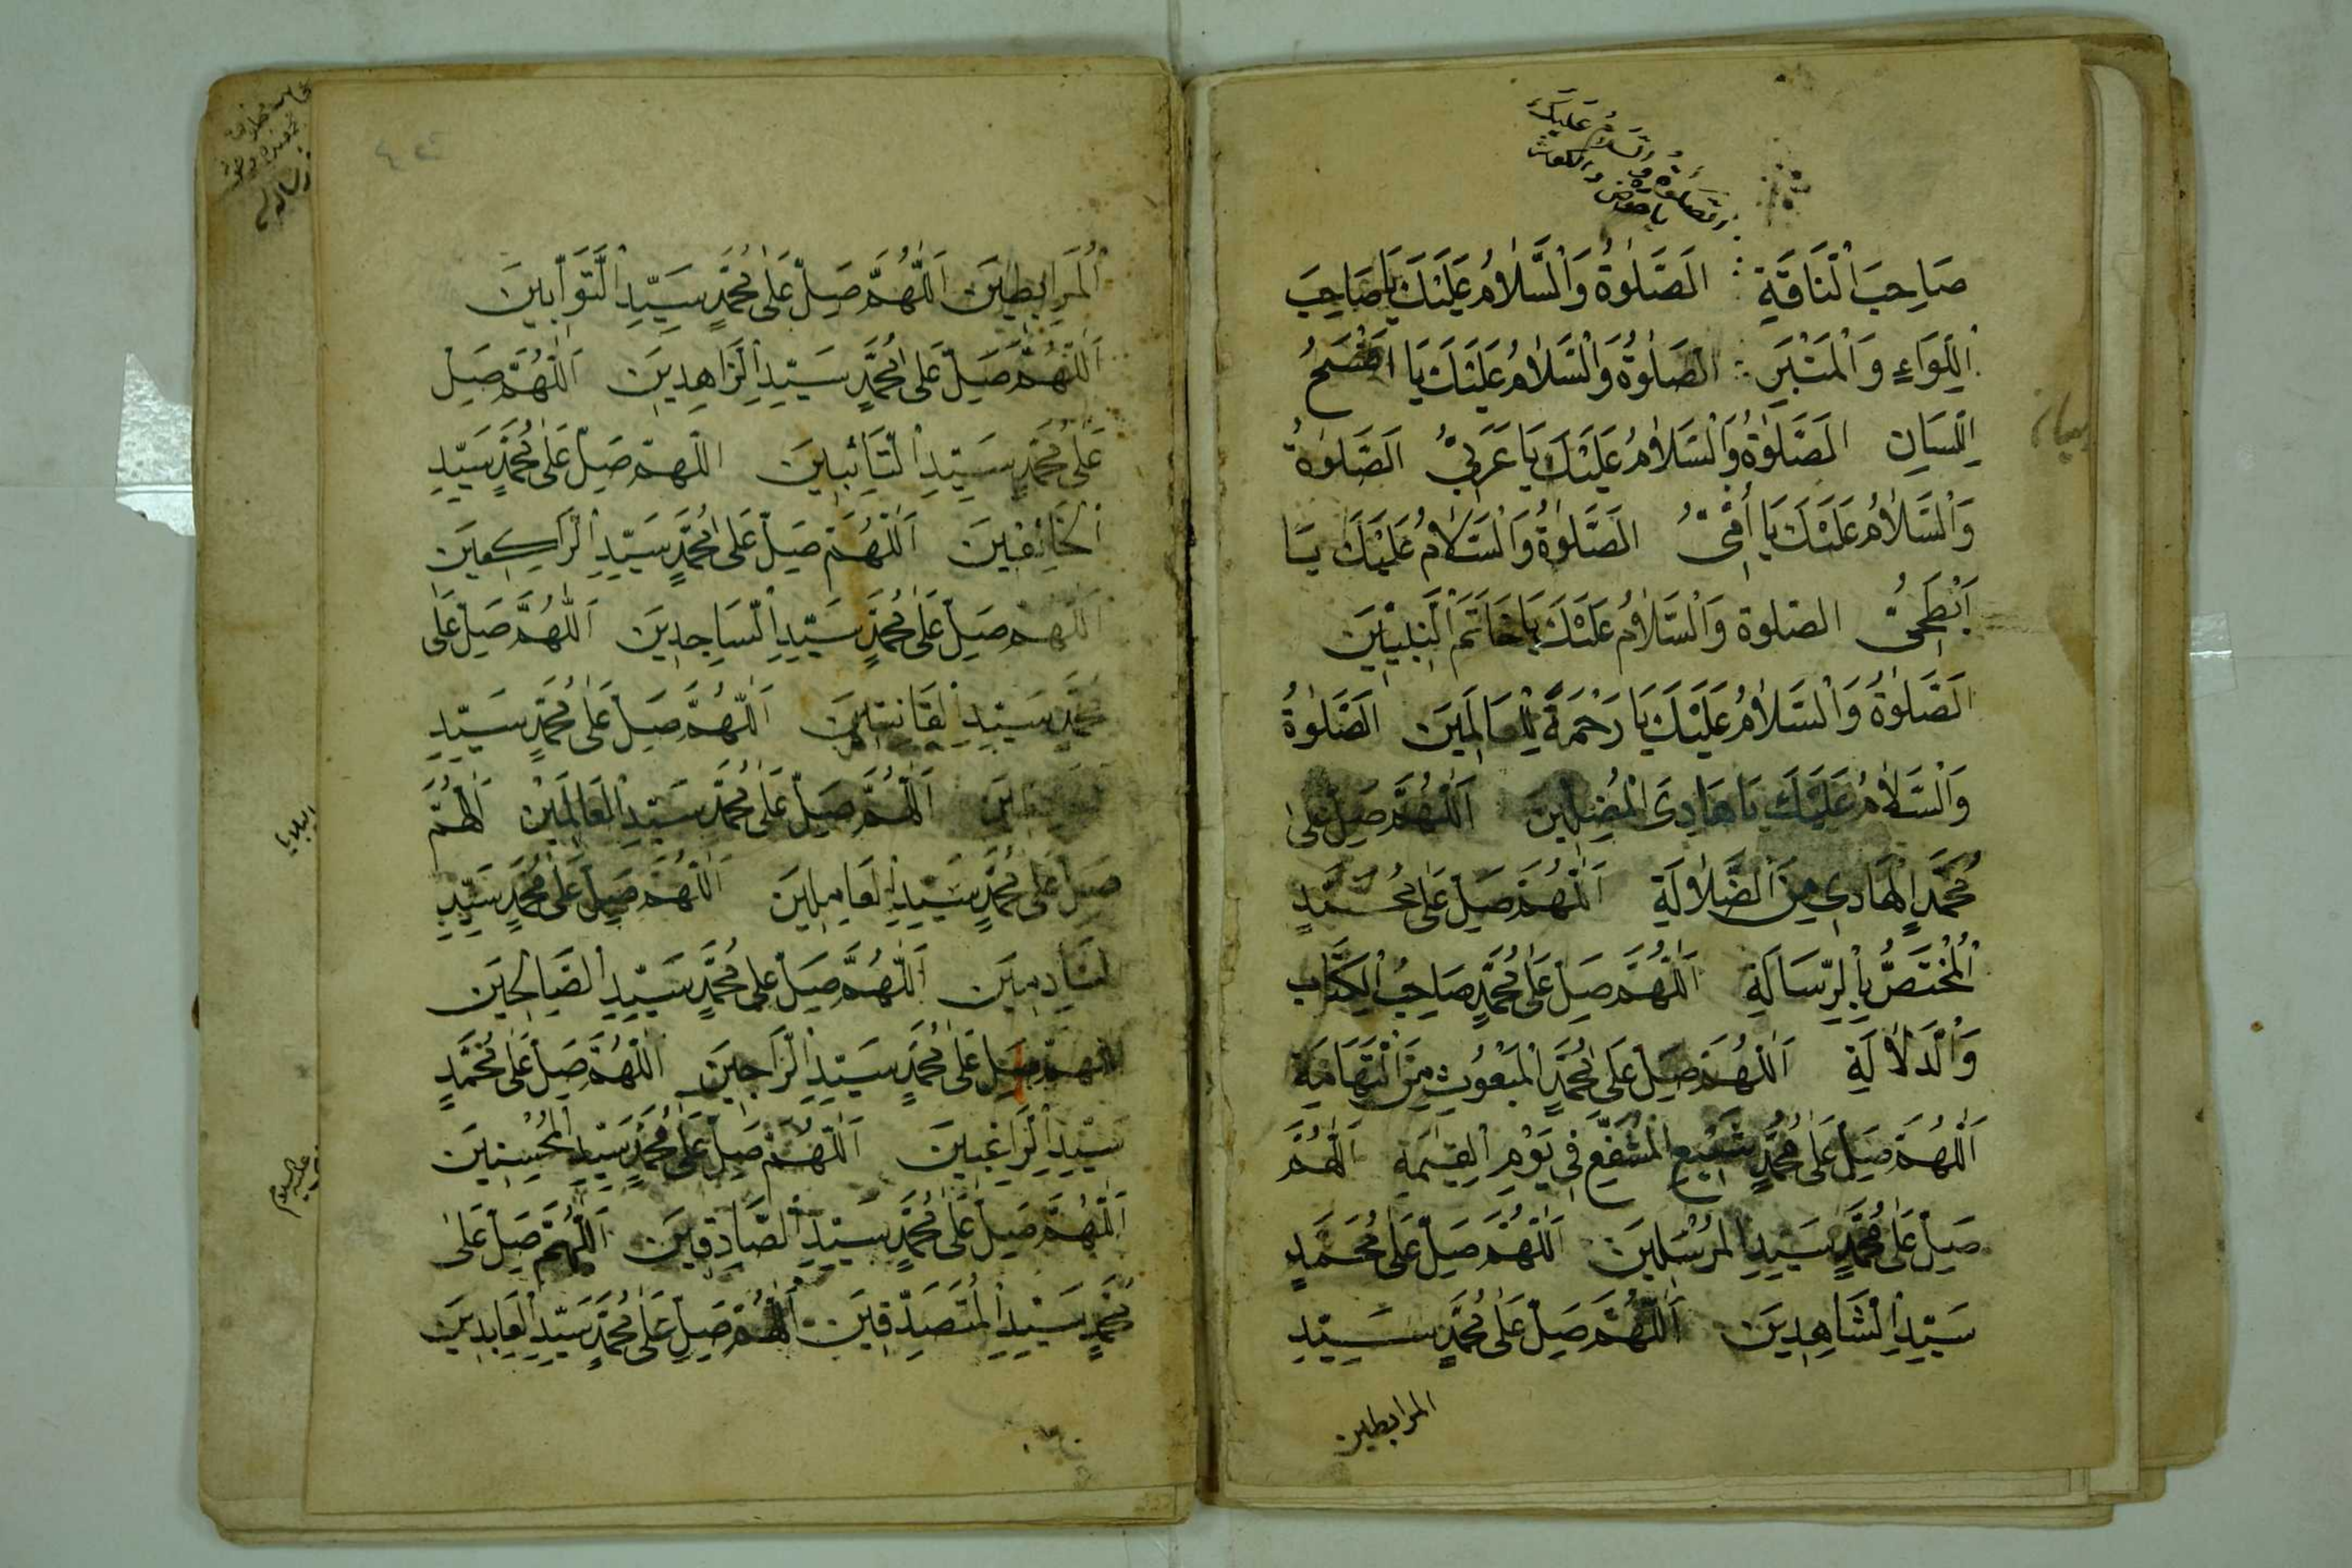 الصلوة والسلام عليك
يا صاحب
صَاحِبَ الْنَاقَةِ الصَّلٰوةُ وَالْسَّلٰامُ عَلَيْكَ يَا صَاحِبَ
الِلّوَاءِ وَالْمَنْبَرِ الصَّلٰوةُ وَالْسَّلٰامُ عَلَيْكَ يَا افْصَحُ
الِلّسَانِ الصَّلٰوةُ وَالْسَّلٰامُ عَلَيْكَ يَا عَرَبِيُّ الصَّلٰوةُ
وَالْسَّلٰامُ عَلَيْكَ يَا أُمِّىُّ الصَّلٰوةُ وَالْسَّلٰامُ عَلَيْكَ يَا
اَبْطَحِىُّ الصلوة وَالْسَّلٰامُ عَلَيْكَ يَا خَاتَمَ الْنَّبِيّٖينَ
الصَّلٰوةُ وَالْسَّلٰامُ عَلَيْكَ يَا رَحْمَةً لِلْعَالَمِينَ الصَّلٰوةُ
وَالْسَّلٰامُ عَلَيْكَ يَا هَادِىَ الْمُضِلّٖينَ اَللّٰهُمَّ صَلِّ عَلٰى
مُحَمَّدٍ الْهَادِى مِنَ الْضَّلٰالَةِ اَللّٰهُمَّ صَلِّ عَلٰى مُحَمَّدٍ
الْمُخْتَصُّ بِالْرِّسَالَةِ اَللّٰهُمَّ صَلِّ عَلٰى مُحَمَّدٍ صَاحِبُ الْكِتَّابِ
وَالْدَلٰالَةِ اَللّٰهُمَّ صَلِّ عَلٰى مُحَمَّدٍ الْمَبْعُوثِ مِنَ الْتَهَامَةِ
اَللّٰهُمَّ صَلِّ عَلٰى مُحَمَّدٍ شَفٖيعِ الْمُشَفَّعِ فِى يَوْمِ الْقِيٰمَةِ اَللّٰهُمَّ
صَلِّ عَلٰى مُحَمَّدٍ سَيِّدِ الْمُرْسَلٖينَ اَللّٰهُمَّ صَلِّ عَلٰى مُحَمَّدٍ
سَيِّدِ الْشَاهِدٖينَ اَللّٰهُمَّ صَلِّ عَلٰى مُحَمَّدٍ سَيِّدِ
المرابطين
الْمُرَابِطٖينَ اَللّٰهُمَّ صَلِّ عَلٰى مُحَمَّدٍ سَيِّدِ الْتَّوَّابٖينَ
اَللّٰهُمَّ صَلِّ عَلٰى مُحَمَّدٍ سَيِّدِ الْزَاهِدٖينَ اَللّٰهُمَّ صَلِّ
عَلٰى مُحَمَّدٍ سَيِّدِ الْتَّائِبٖينَ اللهم صَلِّ عَلٰى مُحَمَّدٍ سَيِّدِ
الْخَائِفٖينَ اَللّٰهُمَّ صَلِّ عَلٰى مُحَمَّدٍ سَيِّدِ الْرَاكِعٖينَ
اَللّٰهُمَّ صَلِّ عَلٰى مُحَمَّدٍ سَيِّدِ الْسَاجِدٖينَ اَللّٰهُمَّ صَلِّ عَلٰى
مُحَمَّدٍ سَيِّدِ الْقَانِتٖينَ اَللّٰهُمَّ صَلِّ عَلٰى مُحَمَّدٍ سَيِّدِ
اَللّٰهُمَّ صَلِّ عَلٰى مُحَمَّدٍ سَيِّدِ الْعَالَمٖينَ اَللّٰهُمَّ
صَلِّ عَلٰى مُحَمَّدٍ سَيِّدِ الْعَامِلٖينَ اَللّٰهُمَّ صَلِّ عَلٰى مُحَمَّدٍ سَيِّدِ
الْنَادِمٖينَ اَللّٰهُمَّ صَلِّ عَلٰى مُحَمَّدٍ سَيِّدِ الْصَالِحٖينَ
اللهم صَلِّ عَلٰى مُحَمَّدٍ سَيِّدِ الْرَاجٖينَ اَللّٰهُمَّ صَلِّ عَلٰى مُحَمَّدٍ
سَيِّدِ الْرَاغِبٖينَ اَللّٰهُمَّ صَلِّ عَلٰى مُحَمَّدٍ سَيِّدِ الْمُحْسِنٖينَ
اَللّٰهُمَّ صَلِّ عَلٰى مُحَمَّدٍ سَيِّدِ الْصَّادِقٖينَ اَللّٰهُمَّ صَلِّ عَلٰى
مُحَمَّدٍ سَيِّدِ الْمُتَصَدِّقٖينَ اَللّٰهُمَّ صَلِّ عَلٰى مُحَمَّدٍ سَيِّدِ الْعَابِدٖينَ
البلايا
عليه السلام